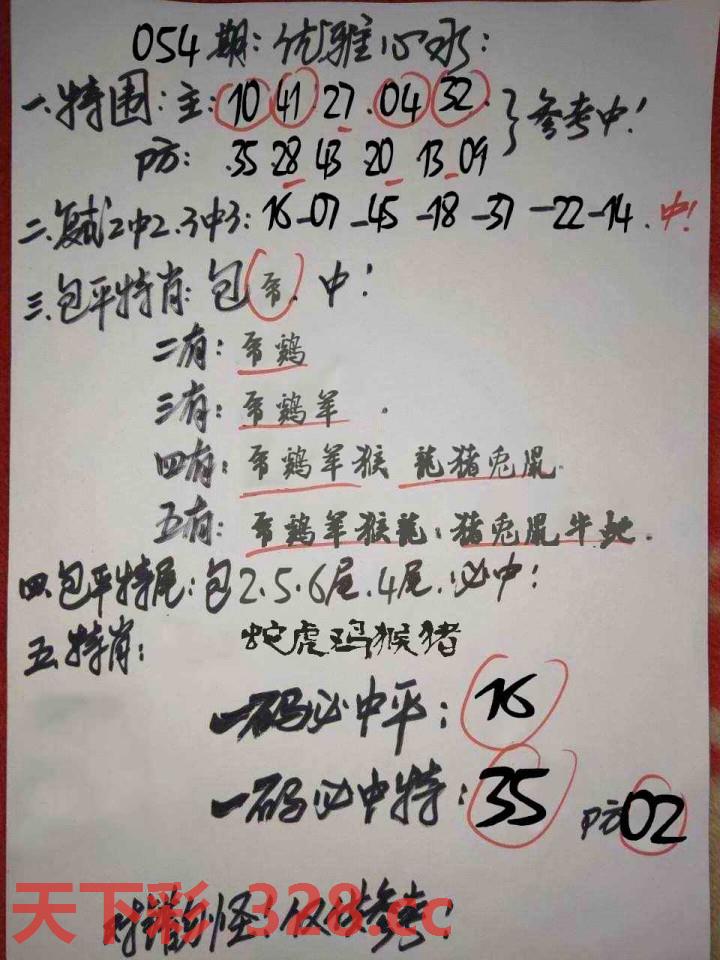 054期:优雅心水:
一.特围:主:10 41 27.04 32.}参考中!
防:35 28 43 20 13 09
二.复式2中2.3中3:16-07-45-18-37-22-14.中!
三.包平特肖:包 帝.中!
二有:帝鸡
三有:帝鸡羊.
四有:帝鸡羊猴 龍猪兔鼠.
五有:帝鸡羊猴龍,猪兔鼠牛地.
四.包平特尾:包2.5.6尾.4尾.必中!
五.特肖: 蛇虎鸡猴猪
一码必中平:16
一码必中特:35 防02
错勿怪!仅供参考!
天下彩 328.cc